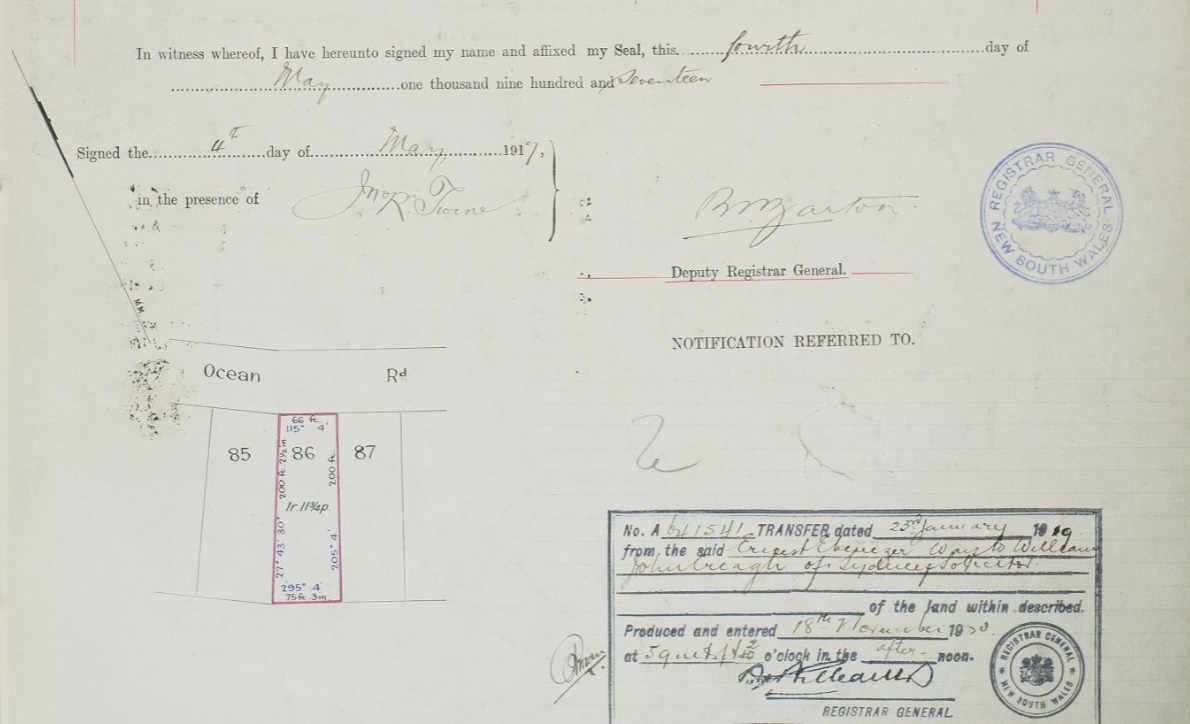 In witness whereof, I have hereunto signed my name and affixed my Seal, this fourth day of
May one thousand nine hundred and seventeen
Signed the 4th day of May, 1917,
in the presence of Jno R. Twine
Deputy Registrar General.
REGISTRAR GENERAL
NEW SOUTH WALES
NOTIFICATION REFERRED TO.
Ocean Rd
66 ft
115° 4'
85 86 87
200 ft 2½ in
200 ft
1r. 11¾p
27° 43' 30"
205° 4'
295° 4'
75ft 3in
No. A 641541 TRANSFER dated 23rd January 1919
from the said Ernest Ebenezer Ways to William
John Creagh of Sydney Solicitor
of the land within described.
Produced and entered 18th November 1930.
at o'clock in the after- noon.
REGISTRAR GENERAL
REGISTRAR GENERAL
NEW SOUTH WALES